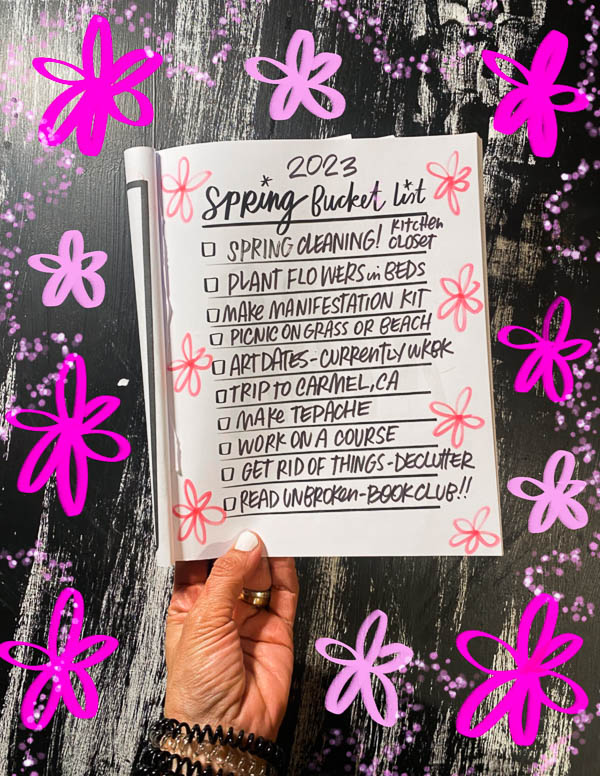 2023
SPRING Bucket list
SPRING CLEANING! KITCHEN CLOSET
PLANT FLOWERS in BEDS
MAKE MANIFESTATION KIT
PICNIC ON GRASS OR BEACH
ART DATES-CURRENTLY WKBK
TRIP TO CARMEL, CA
MAKE TEPACHE
WORK ON A COURSE
GET RID OF THINGS-DECLUTTER
READ UNBROKEN-BOOK CLUB!!